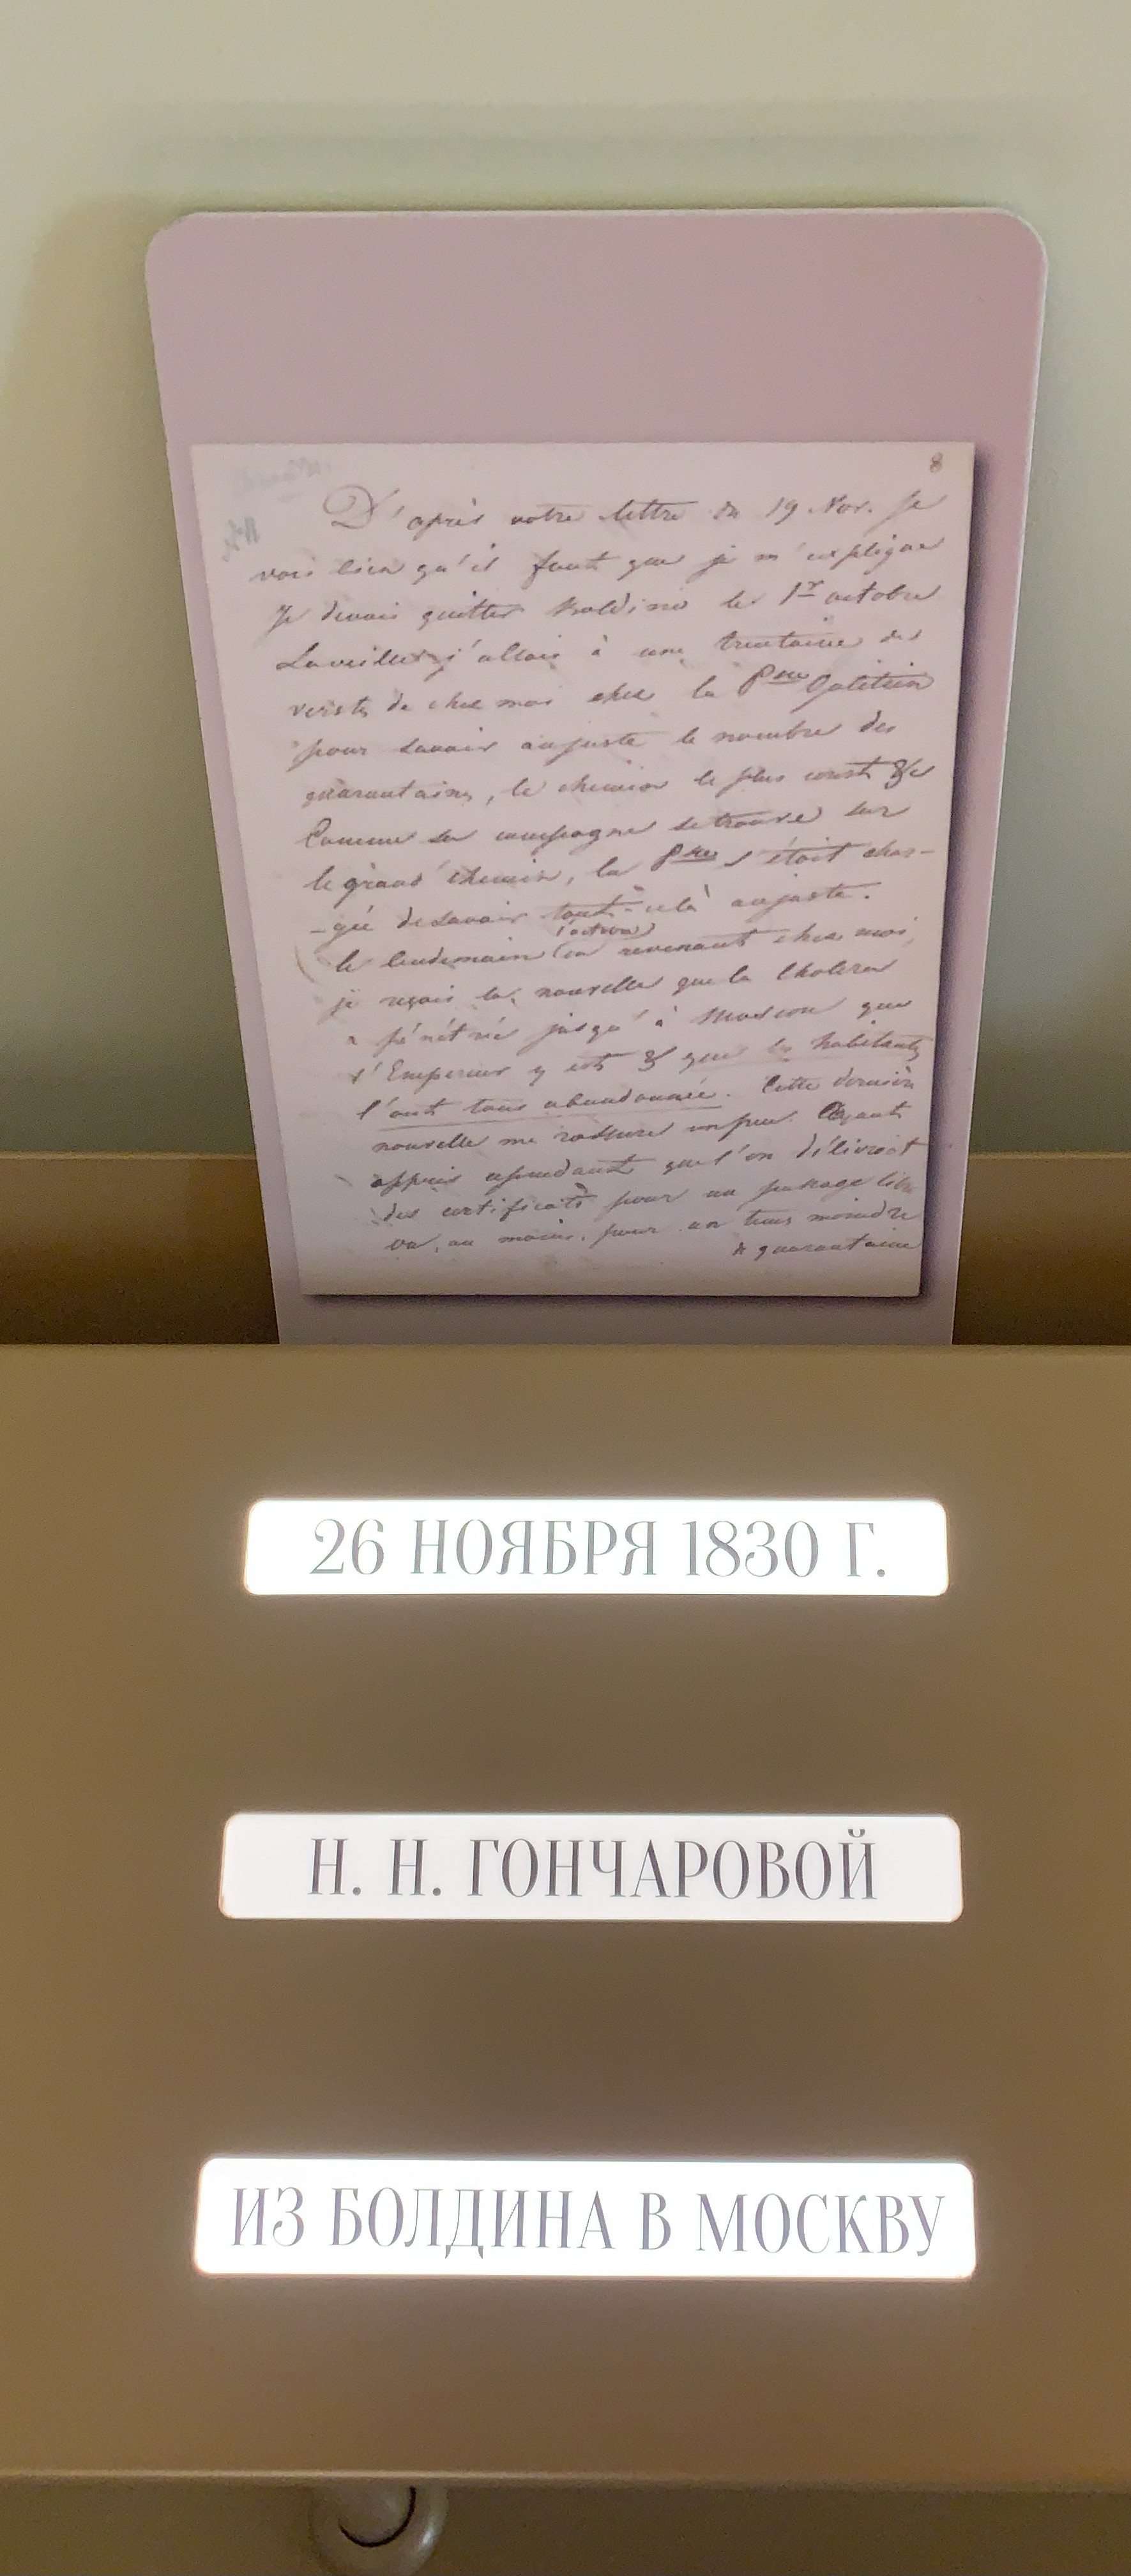 8
D'après votre lettre du 19 Nov. je
vois bien qu'il faut que je m'explique
Je devais quitter Boldino le 1r octobre
La veille j'allais à une trentaine des
versts de chez moi chez la Psse Galitzin
pour savoir au juste le nombre des
quarantaines, le chemin le plus court &c
Comme sa campagne se trouve sur
le grand chemin, la Psse s'était char-
-gée de savoir tout-celà au juste.
le lendemain (1 octobre) en revenant chez moi,
je reçois la nouvelle que le Cholera
a pénétré jusqu'à Moscou que
l'Empereur y est & que les habitants
l'ont tous abandonnée. Cette dernière
nouvelle me rassure un peu. Ayant
appris cependant que l'on délivroit
des certificats pour un passage libre
ou, au moins, pour un tems moindre
de quarantaine
26 НОЯБРЯ 1830 Г.
Н. Н. ГОНЧАРОВОЙ
ИЗ БОЛДИНА В МОСКВУ